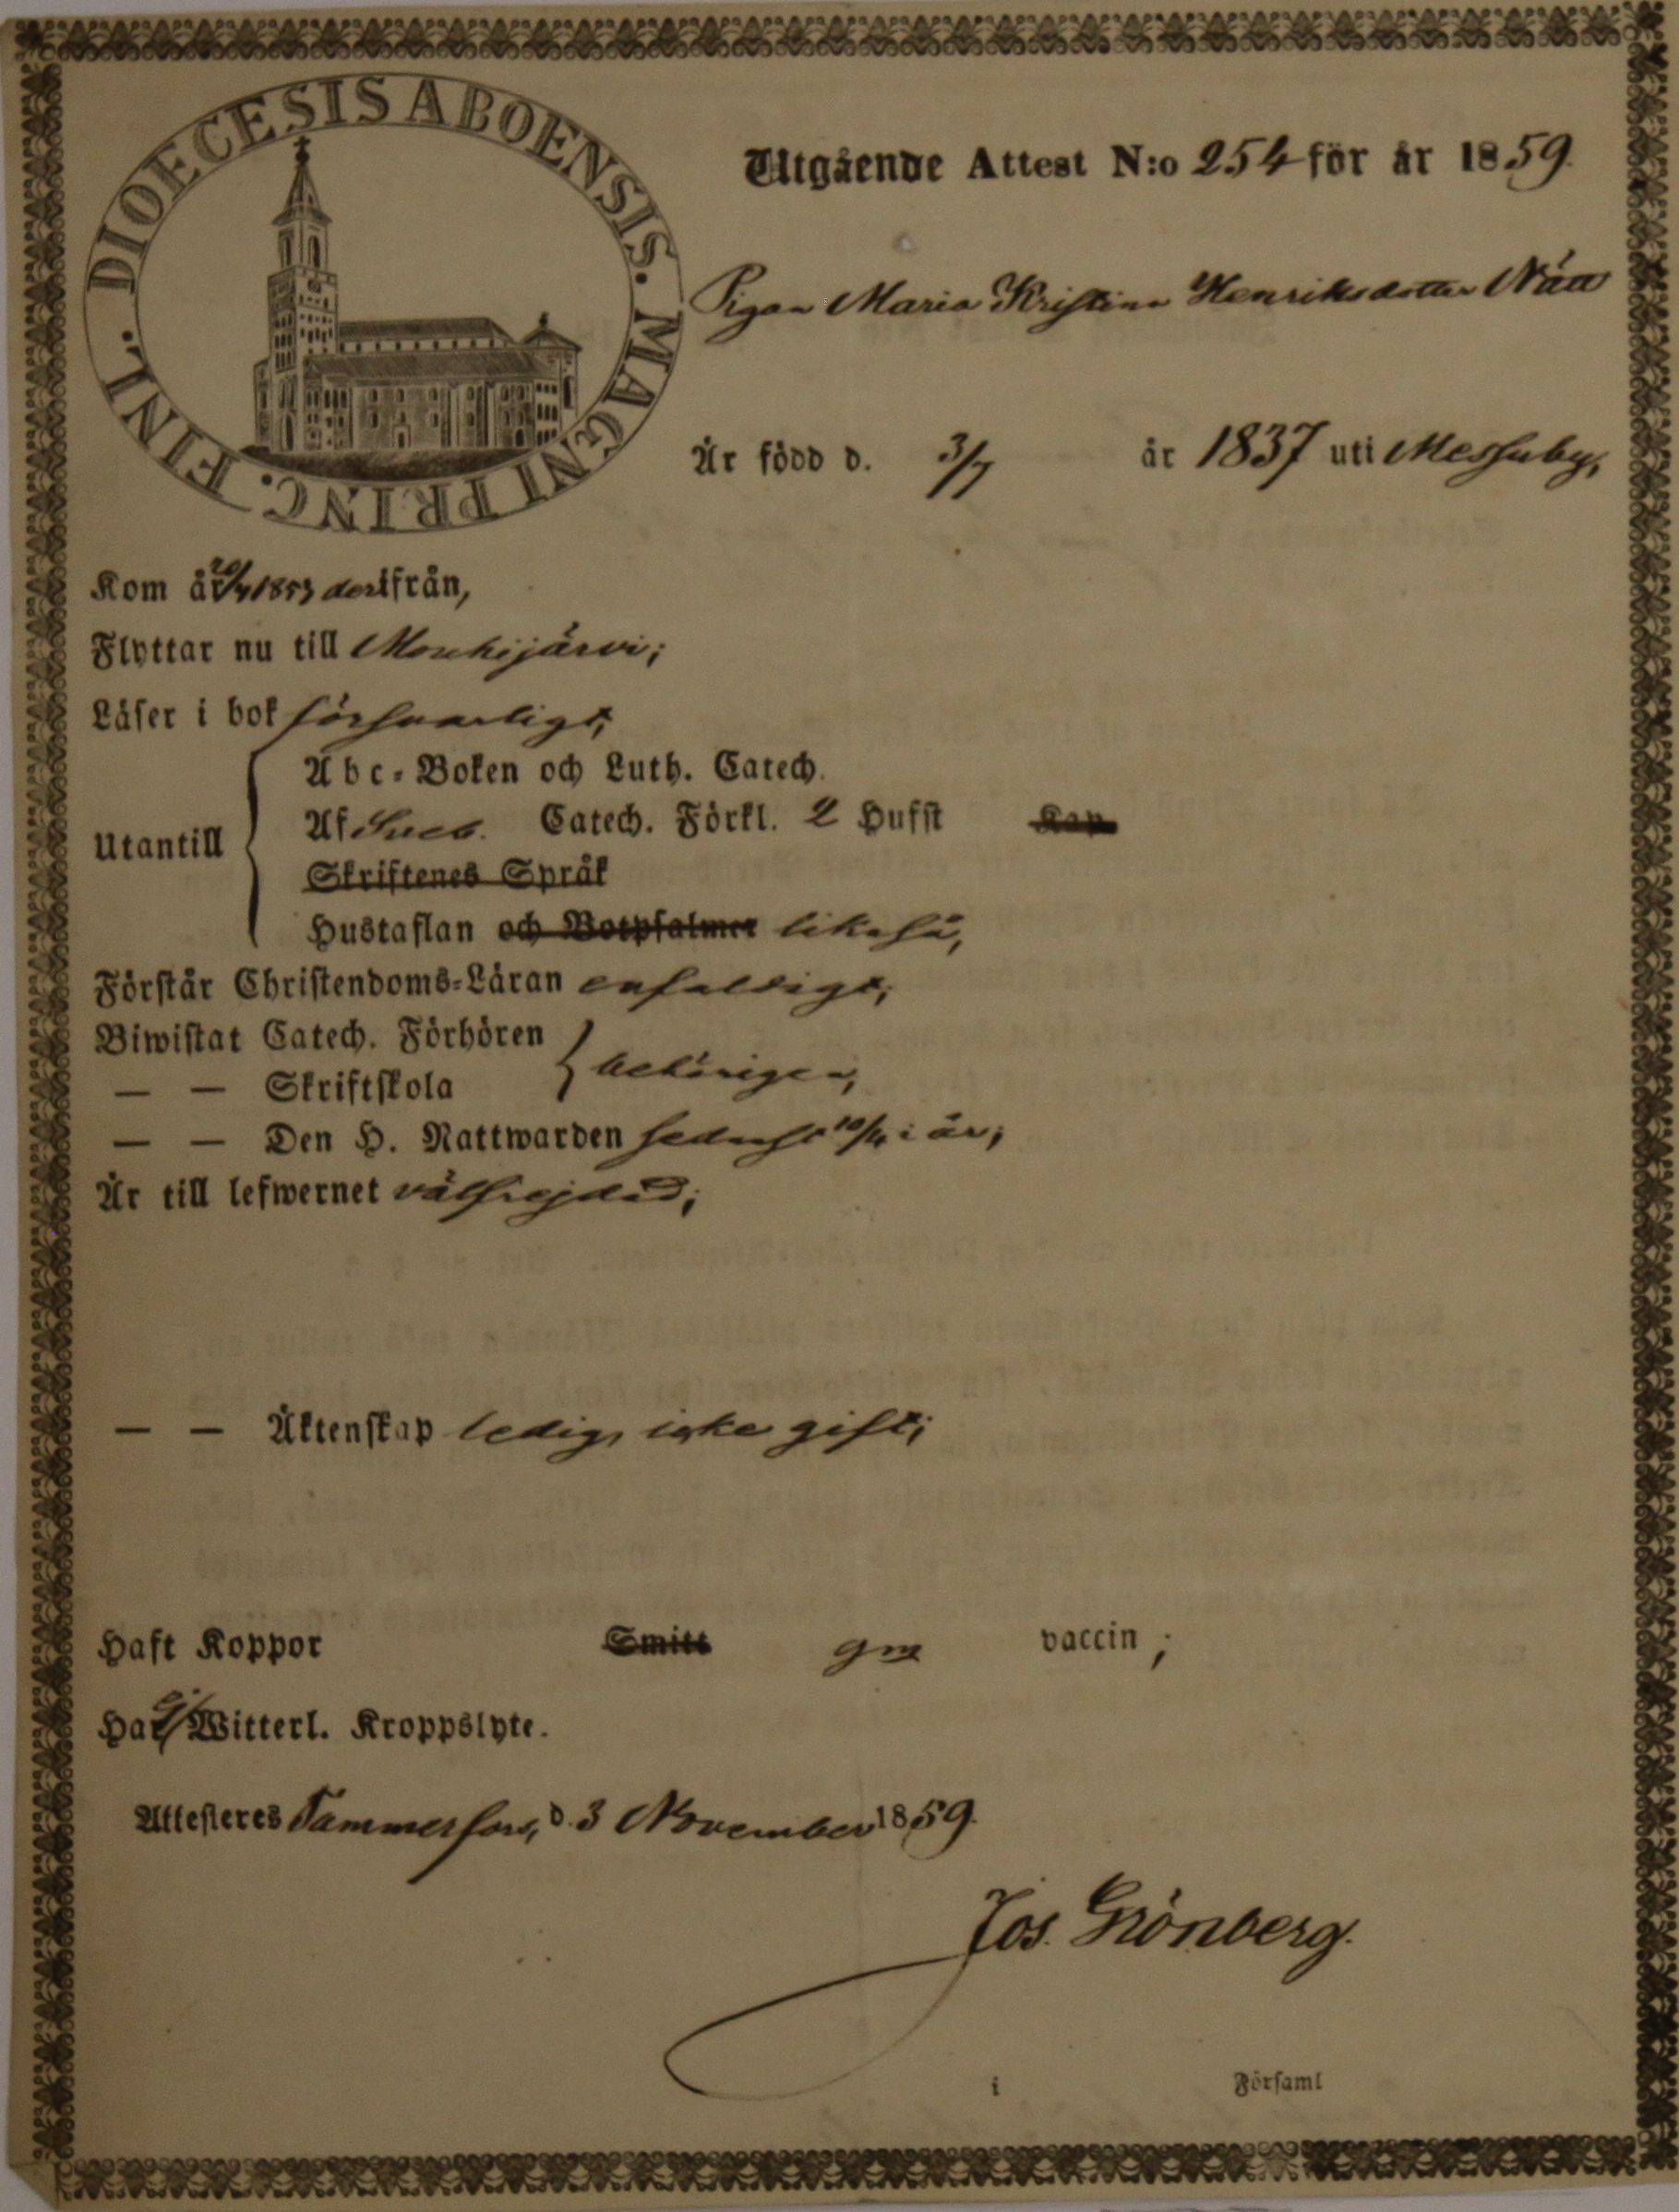 DIOECESIS ABOENSIS. MAGNI PRINC. FINL.
Utgående Attest N:o 254 för år 1859.
Pigan Maria Kristina Henriksdotter
Är född d. 3/7 år 1837 uti Messuby,
Kom år 20/4 1853 derifrån,
Flyttar nu till Mouhijärvi;
Läser i bok försvarligt,
Utantill
Abc-Boken och Luth. Catech.
Af Sveb. Catech. Förkl. 2 Hufst Kap.
Skriftenes Språk
Hustaflan och Botpsalmer likaså,
Förstår Christendoms-Läran enfaldigt;
Biwistat Catech. Förhören
— — Skriftskola
behörigen,
— — Den H. Nattwarden sednast i år;
Är till lefwernet välfrejdad;
— — Äktenskap ledig, icke gift;
Haft Koppor Smitt gm vaccin;
Har ej Witterl. Kroppslyte.
Attesteres Tammerfors, d. 3 November 1859.
Jos. Grönberg.
i Församl